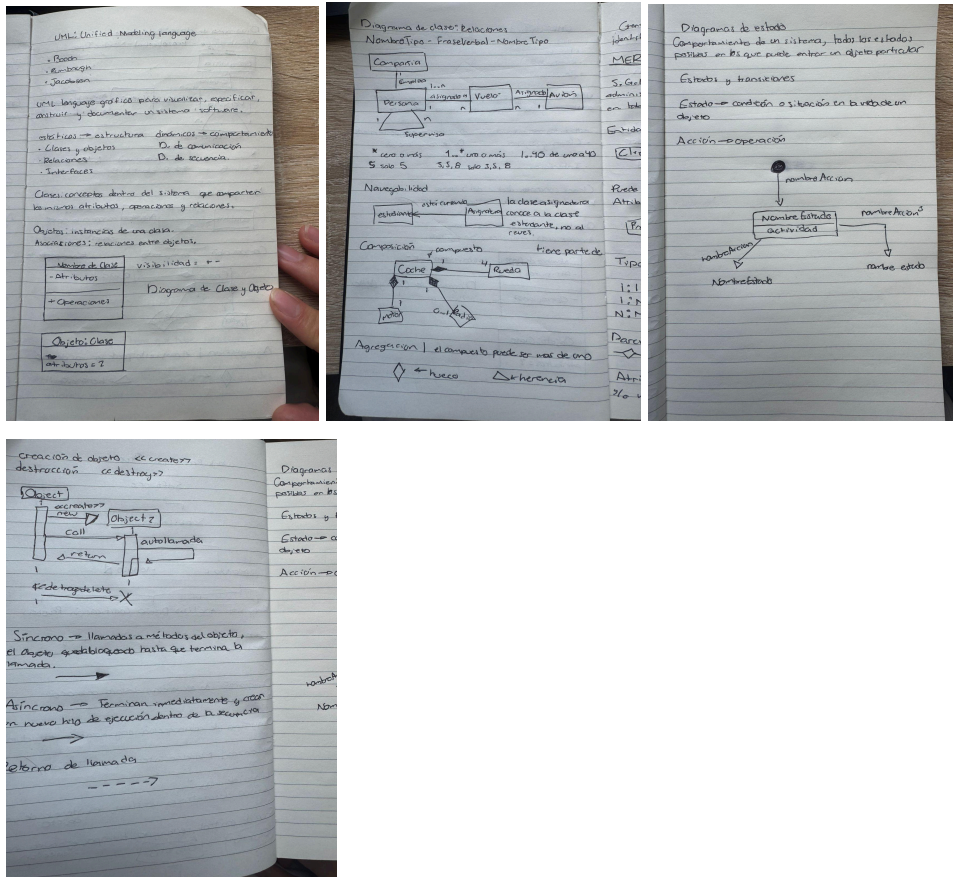 UML: Unified Modeling Language
• Booch
• Rumbaugh
• Jacobson
UML lenguaje gráfico para visualizar, especificar,
construir y documentar un sistema software.
estáticos → estructura dinámicos → comportamiento
• Clases y objetos D. de comunicación
• Relaciones D. de secuencia.
• Interfaces
Clases: conceptos dentro del sistema que comparten
los mismos atributos, operaciones y relaciones.
Objetos: instancias de una clase.
Asociaciones: relaciones entre objetos.
Nombre de Clase visibilidad = + -
- Atributos
Diagrama de Clase y Objeto
+ Operaciones
Objeto: Clase
atributos = ?
Diagrama de clase: Relaciones
NombreTipo - FraseVerbal - Nombre Tipo
Compañia
emplea
1..n
Persona asignado a Vuelo Asignado Avión
1 n n 1
Supervisa
* cero o más 1..* uno o más 1..40 de uno a 40
5 solo 5 3,5,8 solo 3,5,8
Navegabilidad
estudiante está cursando Asignatura
la clase asignatura
conoce a la clase
estudiante, no al
reves.
Composición compuesto tiene parte de
Coche 1 4 Rueda
1 1
motor
Agregacion | el compuesto puede ser mas de uno
← hueco ← herencia
MER
Tipo
1:1
1:N
N:M
Diagramas de estado
Comportamiento de un sistema, todos los estados
posibles en los que puede entrar un objeto particular
Estados y transiciones
Estado → condición o situación en la vida de un
objeto
Acción → operación
nombreAccion
Nombre Estado nombreAccion
actividad
nombreAccion
Nombre Estado nombre estado
creación de objeto <<create>>
destrucción <<destroy>>
Object
<<create>>
new Object 2
call
autollamada
return
Síncrono → llamados a métodos del objeto,
el objeto queda bloqueado hasta que termina la
llamada.
Asíncrono → Terminan inmediatamente y crean
un nuevo hilo de ejecución dentro de la secuencia
Retorno de llamada
Diagramas
Comportamien
posibles en los
Estados y
Estado → co
objeto
Acción →
nombreA
Nom